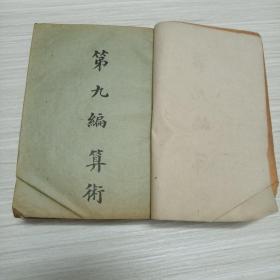 第九編算術